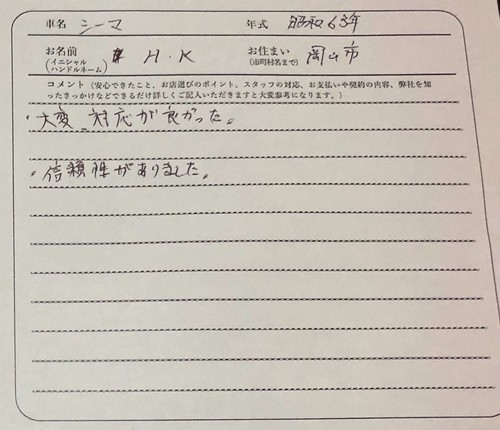 車名 シーマ 年式 昭和63年
お名前 H.K お住まい 岡山市
(イニシャル (市町村名まで)
ハンドルネーム)
コメント(安心できたこと、お店選びのポイント、スタッフの対応、お支払いや契約の内容、弊社を知
ったきっかけなどできるだけ詳しくご記入いただきますと大変参考になります。)
・大変、対応が良かった。
・信頼性がありました。